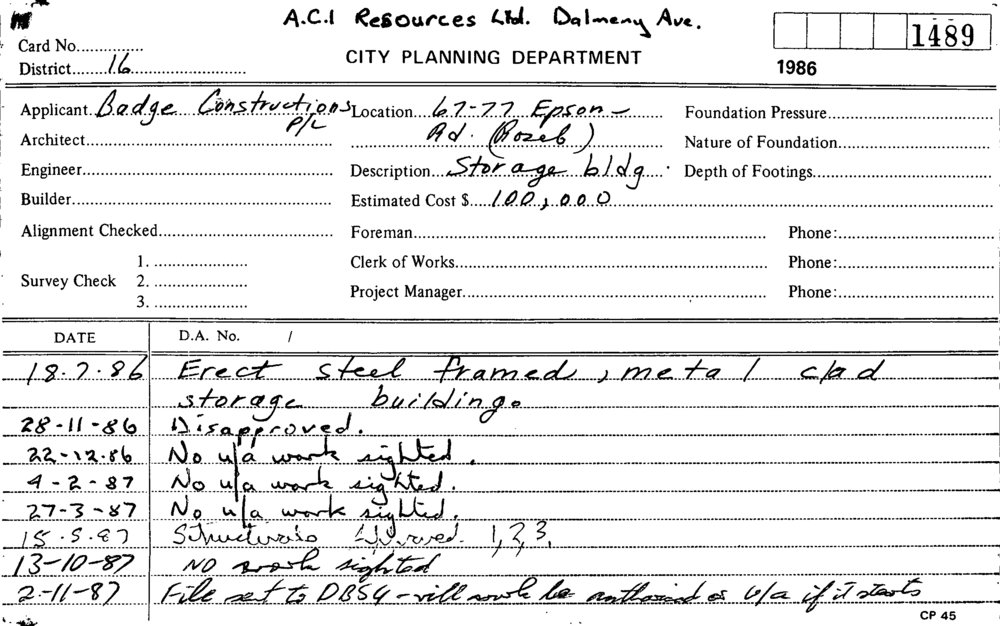 A.C.I Resources Ltd. Dalmeny Ave.
1489
Card No.
CITY PLANNING DEPARTMENT
District 16
1986
Applicant Badge Constructions P/L
Location 67-77 Epson Rd. (Roseb)
Foundation Pressure
Architect
Nature of Foundation
Engineer
Description Storage bldg.
Depth of Footings
Builder
Estimated Cost $ 100,000
Alignment Checked
Foreman
Phone:
Survey Check
1.
2.
3.
Clerk of Works
Phone:
Project Manager
Phone:
DATE
D.A. No. /
18.7.86 Erect steel framed, metal clad
storage building.
28-11-86 Disapproved.
22-12.86 No u/a work sighted.
4-2-87 No u/a work sighted.
27-3-87 No u/a work sighted.
15.5.87 1,2,3,
13-10-87 NO work sighted
2-11-87 File sent to DBS4 - will work be as u/a if it starts
CP 45